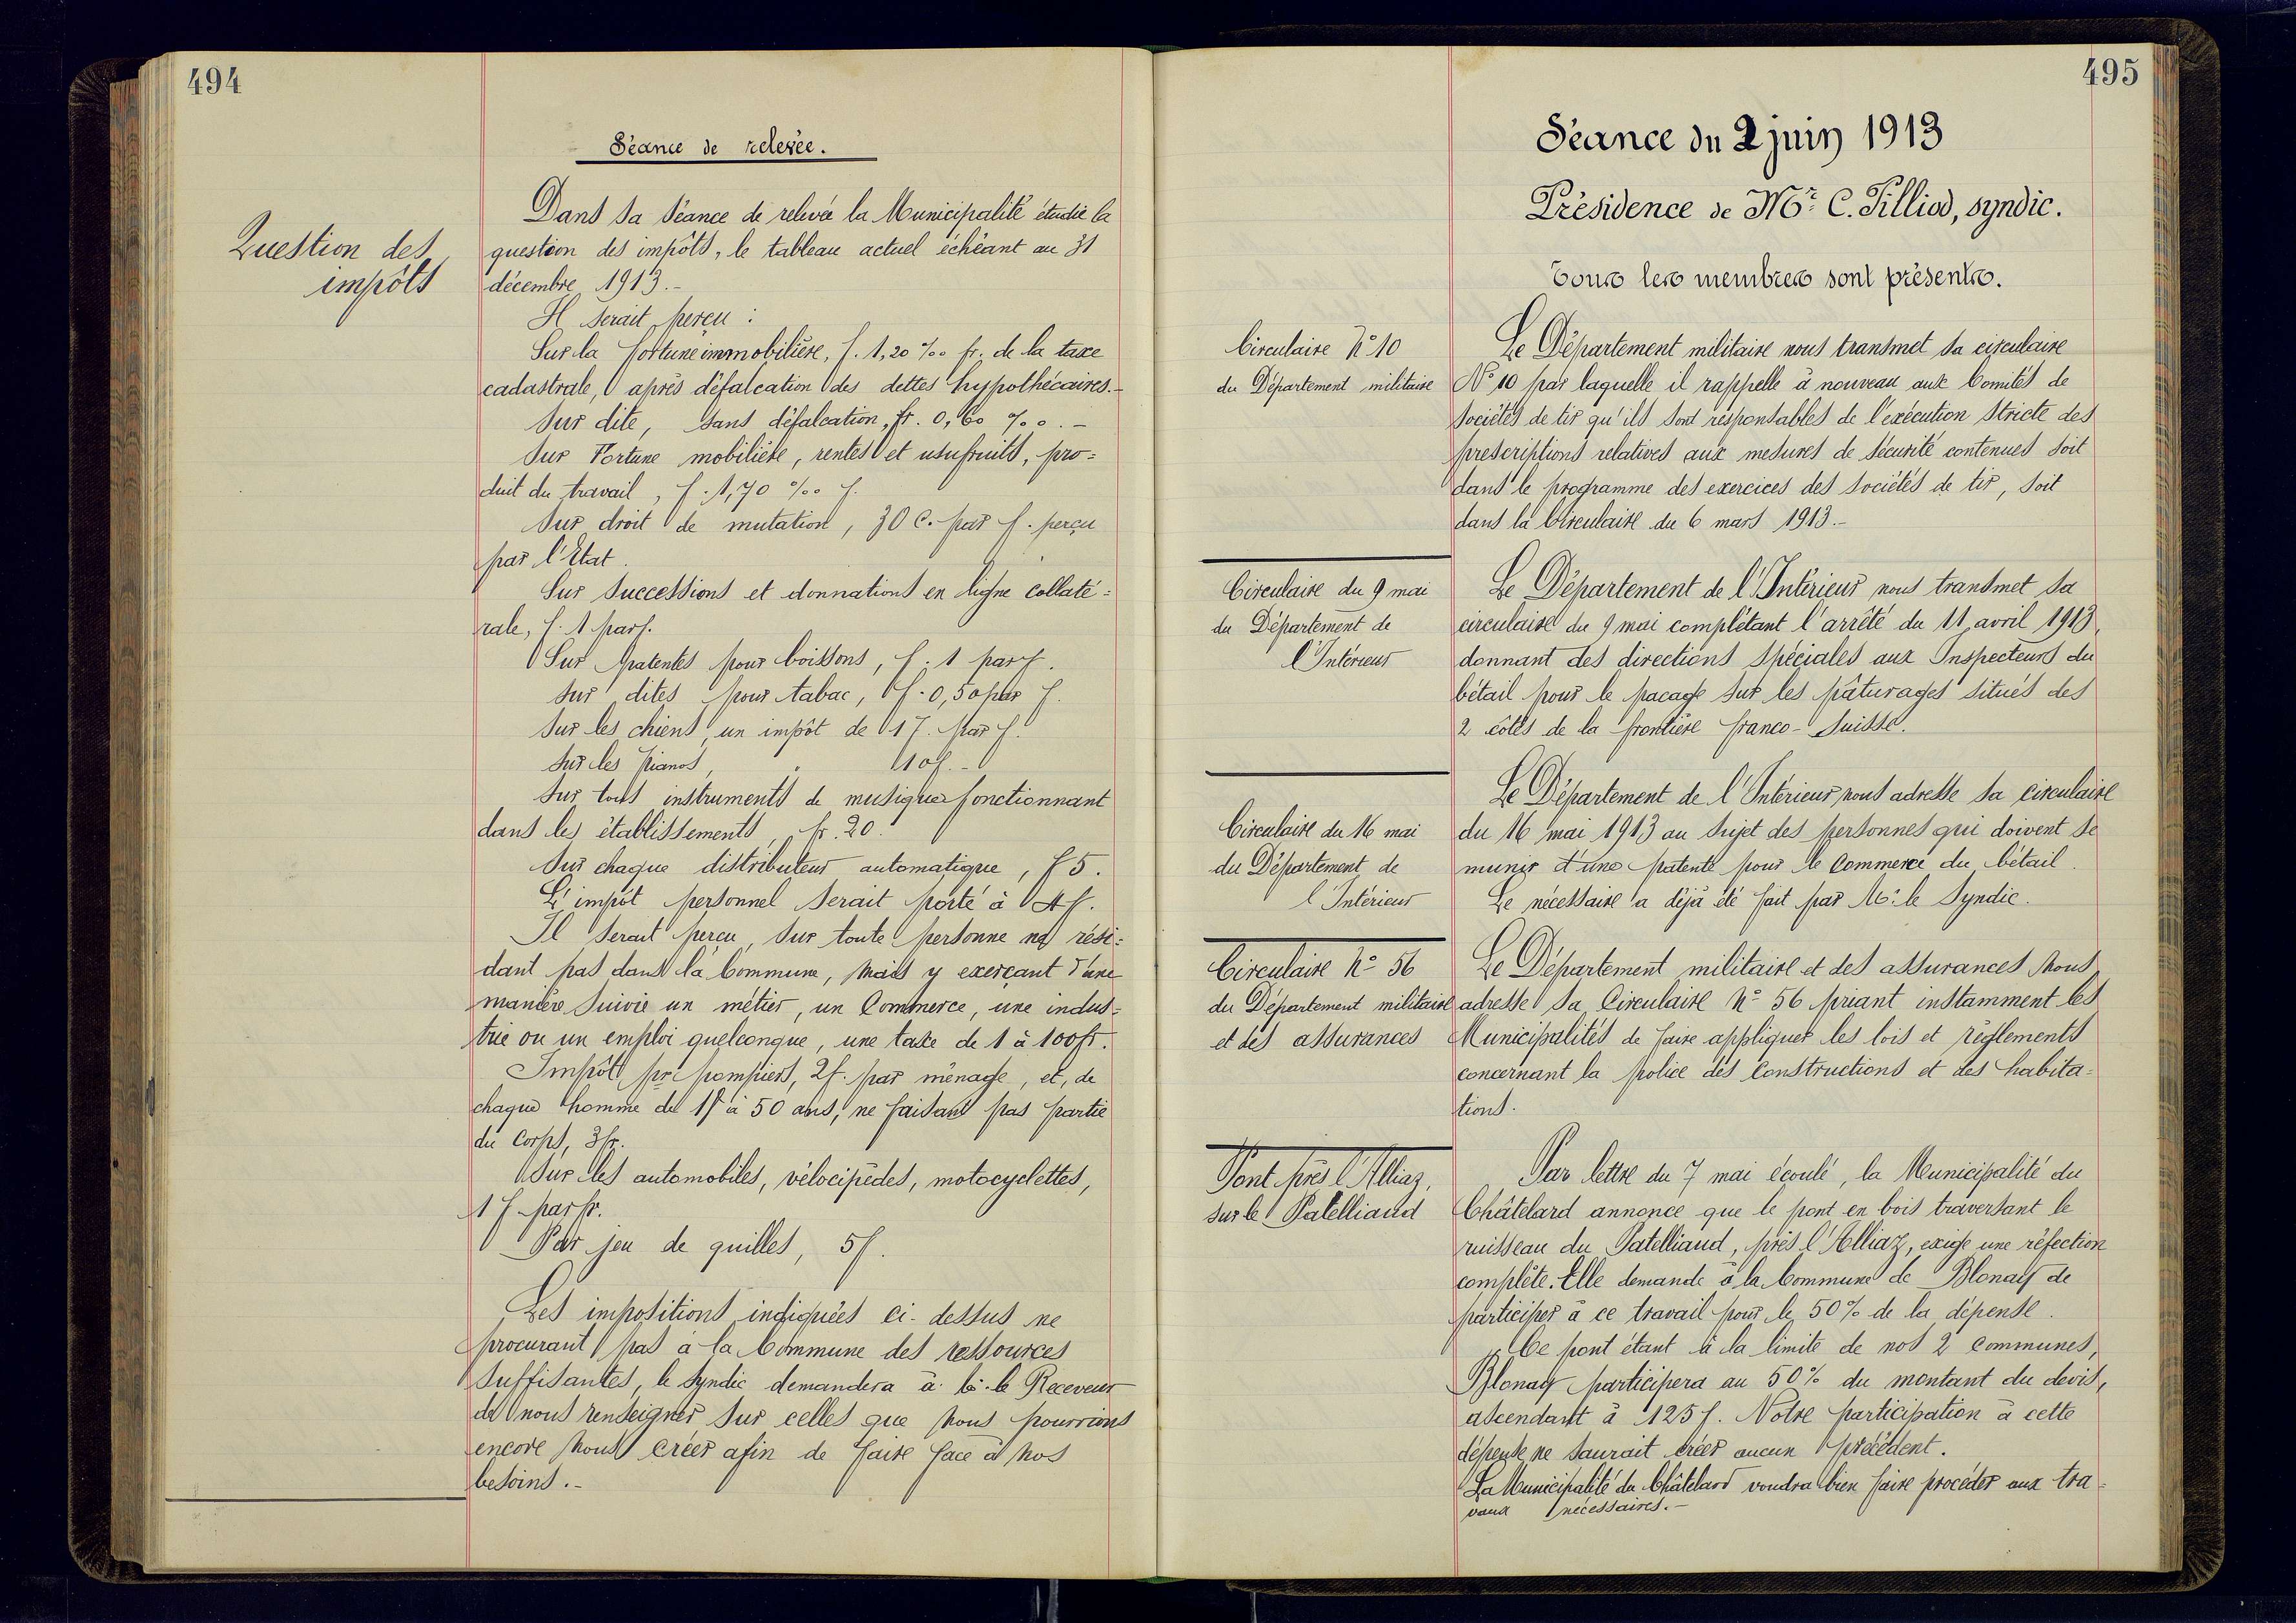 494
Séance de relevée.
Question des
impôts
Dans sa séance de relevée la Municipalité étudie la
question des impôts, le tableau actuel échéant au 31
décembre 1913.-
Il serait perçu :
Sur la fortune immobilière, f. 1,20 ‰ fr. de la taxe
cadastrale, après défalcation des dettes hypothécaires.-
Sur dite, sans défalcation, fr. 0,60 ‰.-
Sur Fortune mobilière, rentes et usufruits, pro=
duit du travail, f. 1,70 ‰ f.
Sur droit de mutation, 30 c. par f. perçu
par l'Etat.
Sur successions et donnations en ligne collaté=
rale, f. 1 par f.
Sur patentes pour boissons, f. 1 par f.
sur dites pour tabac, f. 0,50 par f.
Sur les chiens, un impôt de 1 f. par f.
sur les pianos, " 10 f.-
Sur tous instruments de musique fonctionnant
dans les établissements, fr. 20.
Sur chaque distributeur automatique, f 5.
L'impôt personnel serait porté à 4 f.
Il serait perçu, sur toute personne ne rési=
dant pas dans la Commune, mais y exerçant d'une
manière suivie un métier, un Commerce, une indus=
trie ou un emploi quelconque, une taxe de 1 à 100 fr.
Impôt pr. pompiers, 2 f. par ménage, et, de
chaque homme de à 50 ans, ne faisant pas partie
du Corps, 3 fr.
Sur les automobiles, vélocipèdes, motocyclettes,
1 f. par fr.
Par jeu de quilles, 5 f.
Les impositions indiquées ci-dessus ne
procurant pas à la Commune des ressources
suffisantes, le Syndic demandera à le Receveur
de nous renseigner sur celles que nous pourrions
encore nous créer afin de faire face à nos
besoins.-
495
Séance du 2 juin 1913
Présidence de Mr. C. Pilliod, syndic.
Tous les membres sont présents.
Circulaire No 10
du Département militaire
Le Département militaire nous transmet sa circulaire
No 10 par laquelle il rappelle à nouveau aux Comités de
Sociétés de tir qu'ils sont responsables de l'exécution stricte des
prescriptions relatives aux mesures de sécurité contenues soit
dans le programme des exercices des sociétés de tir, soit
dans la Circulaire du 6 mars 1913.-
Circulaire du 9 mai
du Département de
l'Intérieur
Le Département de l'Intérieur nous transmet sa
circulaire du 9 mai complétant l'arrêté du 11 avril 1913,
donnant des directions spéciales aux Inspecteurs du
bétail pour le pacage sur les pâturages situés des
2 côtés de la frontière franco-Suisse.
Circulaire du 16 mai
du Département de
l'Intérieur
Le Département de l'Intérieur nous adresse sa circulaire
du 16 mai 1913 au sujet des personnes qui doivent se
munir d'une patente pour le Commerce du bétail.
Le nécessaire a déjà été fait par Mr. le Syndic.
Circulaire No 56
du Département militaire
et des assurances
Le Département militaire et des assurances nous
adresse sa Circulaire No 56 priant instamment les
Municipalités de faire appliquer les lois et règlements
concernant la police des Constructions et des habita=
tions.
Pont près l'Alliaz,
sur le Patelliaud
Par lettre du 7 mai écoulé, la Municipalité du
Châtelard annonce que le pont en bois traversant le
ruisseau du Patelliaud, près l'Alliaz, exige une réfection
complète. Elle demande à la Commune de Blonay de
participer à ce travail pour le 50% de la dépense.
Ce pont étant à la limite de nos 2 Communes,
Blonay participera au 50% du montant du devis,
ascendant à 125 f. Notre participation à cette
dépense ne saurait créer aucun précédent.
La Municipalité du Châtelard voudra bien faire procéder aux tra=
vaux nécessaires.-